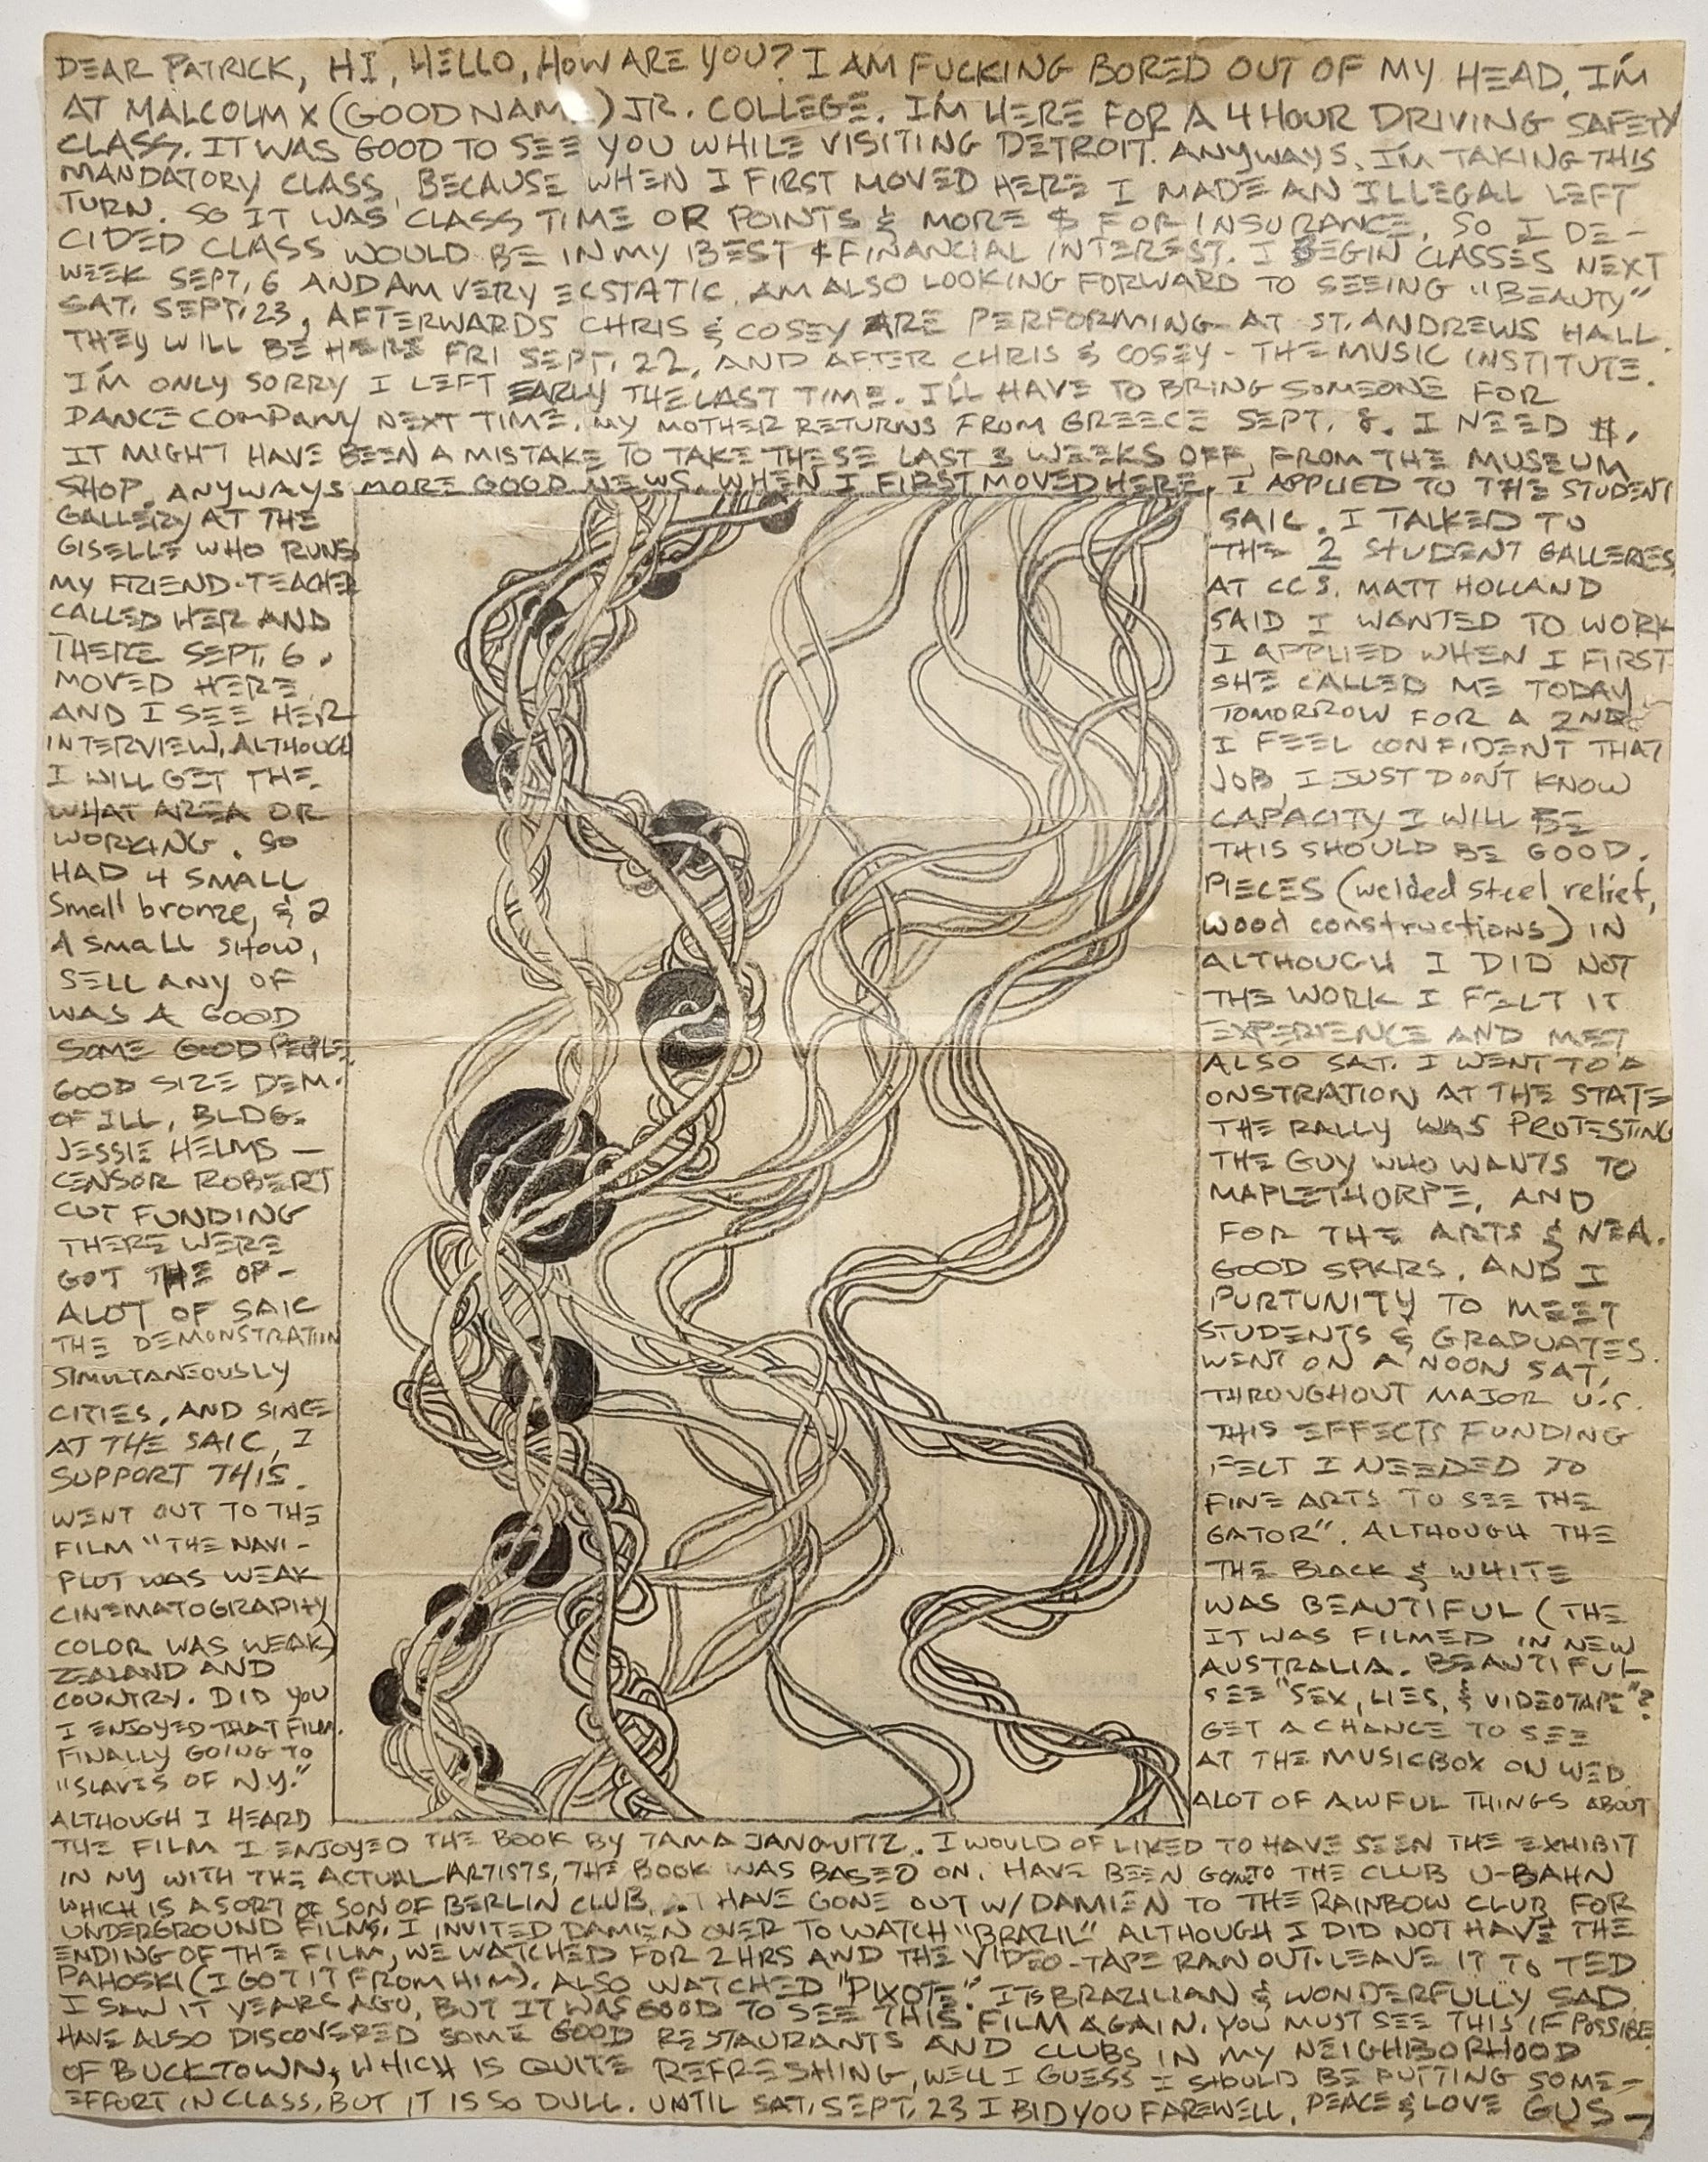 DEAR PATRICK, HI, HELLO, HOW ARE YOU? I AM FUCKING BORED OUT OF MY HEAD. I'M
AT MALCOLM X (GOOD NAME) JR. COLLEGE. I'M HERE FOR A 4 HOUR DRIVING SAFETY
CLASS. IT WAS GOOD TO SEE YOU WHILE VISITING DETROIT. ANYWAYS, I'M TAKING THIS
MANDATORY CLASS, BECAUSE WHEN I FIRST MOVED HERE I MADE AN ILLEGAL LEFT
TURN. SO IT WAS CLASS TIME OR POINTS & MORE $ FOR INSURANCE. SO I DE-
CIDED CLASS WOULD BE IN MY BEST & FINANCIAL INTEREST. I BEGIN CLASSES NEXT
WEEK SEPT. 6 AND AM VERY ECSTATIC. AM ALSO LOOKING FORWARD TO SEEING "BEAUTY"
SAT. SEPT. 23, AFTERWARDS CHRIS & COSEY ARE PERFORMING AT ST. ANDREWS HALL.
THEY WILL BE HERE FRI SEPT. 22, AND AFTER CHRIS & COSEY - THE MUSIC INSTITUTE.
I'M ONLY SORRY I LEFT EARLY THE LAST TIME. I'LL HAVE TO BRING SOMEONE FOR
DANCE COMPANY NEXT TIME. MY MOTHER RETURNS FROM GREECE SEPT. 8. I NEED $,
IT MIGHT HAVE BEEN A MISTAKE TO TAKE THESE LAST 3 WEEKS OFF, FROM THE MUSEUM
SHOP. ANYWAYS MORE GOOD NEWS. WHEN I FIRST MOVED HERE, I APPLIED TO THE STUDENT
GALLERY AT THE SAIC. I TALKED TO
GISELLE WHO RUNS THE 2 STUDENT GALLERIES
MY FRIEND-TEACHER AT CCS. MATT HOLLAND
CALLED HER AND SAID I WANTED TO WORK
THERE SEPT. 6. I APPLIED WHEN I FIRST
MOVED HERE SHE CALLED ME TODAY
AND I SEE HER TOMORROW FOR A 2ND
INTERVIEW, ALTHOUGH I FEEL CONFIDENT THAT
I WILL GET THE JOB, I JUST DON'T KNOW
WHAT AREA OR CAPACITY I WILL BE
WORKING. SO THIS SHOULD BE GOOD.
HAD 4 SMALL PIECES (welded steel relief,
small bronze, & 2 wood constructions) IN
A SMALL SHOW, ALTHOUGH I DID NOT
SELL ANY OF THE WORK I FELT IT
WAS A GOOD EXPERIENCE AND MET
SOME GOOD PEOPLE. ALSO SAT. I WENT TO A
GOOD SIZE DEM- ONSTRATION AT THE STATE
OF ILL. BLDG. THE RALLY WAS PROTESTING
JESSIE HELMS — THE GUY WHO WANTS TO
CENSOR ROBERT MAPLETHORPE, AND
CUT FUNDING FOR THE ARTS & NEA.
THERE WERE GOOD SPKRS. AND I
GOT THE OP- PURTUNITY TO MEET
ALOT OF SAIC STUDENTS & GRADUATES.
THE DEMONSTRATION WENT ON A NOON SAT,
SIMULTANEOUSLY THROUGHOUT MAJOR U.S.
CITIES, AND SINCE THIS EFFECTS FUNDING
AT THE SAIC, I FELT I NEEDED TO
SUPPORT THIS. FINE ARTS TO SEE THE
WENT OUT TO THE GATOR". ALTHOUGH THE
FILM "THE NAVI- THE BLACK & WHITE
PLOT WAS WEAK WAS BEAUTIFUL (THE
CINEMATOGRAPHY IT WAS FILMED IN NEW
COLOR WAS WEAK) AUSTRALIA. BEAUTIFUL
ZEALAND AND SEE "SEX, LIES, & VIDEOTAPE"?
COUNTRY. DID YOU GET A CHANCE TO SEE
I ENJOYED THAT FILM. AT THE MUSICBOX ON WED.
FINALLY GOING TO
"SLAVES OF N.Y."
ALTHOUGH I HEARD ALOT OF AWFUL THINGS ABOUT
THE FILM I ENJOYED THE BOOK BY TAMA JANOWITZ. I WOULD OF LIKED TO HAVE SEEN THE EXHIBIT
IN NY WITH THE ACTUAL ARTISTS, THE BOOK WAS BASED ON. HAVE BEEN GOING TO THE CLUB U-BAHN
WHICH IS A SORT OF SON OF BERLIN CLUB. HAVE GONE OUT W/DAMIEN TO THE RAINBOW CLUB FOR
UNDERGROUND FILMS. I INVITED DAMIEN OVER TO WATCH "BRAZIL" ALTHOUGH I DID NOT HAVE THE
ENDING OF THE FILM, WE WATCHED FOR 2 HRS AND THE VIDEO-TAPE RAN OUT. LEAVE IT TO TED
PAHOSKI (I GOT IT FROM HIM). ALSO WATCHED "PIXOTE." ITS BRAZILIAN & WONDERFULLY SAD.
I SAW IT YEARS AGO, BUT IT WAS GOOD TO SEE THIS FILM AGAIN. YOU MUST SEE THIS IF POSSIBLE.
HAVE ALSO DISCOVERED SOME GOOD RESTAURANTS AND CLUBS IN MY NEIGHBORHOOD
OF BUCKTOWN, WHICH IS QUITE REFRESHING, WELL I GUESS I SHOULD BE PUTTING SOME-
EFFORT IN CLASS, BUT IT IS SO DULL. UNTIL SAT. SEPT. 23 I BID YOU FAREWELL, PEACE & LOVE GUS —